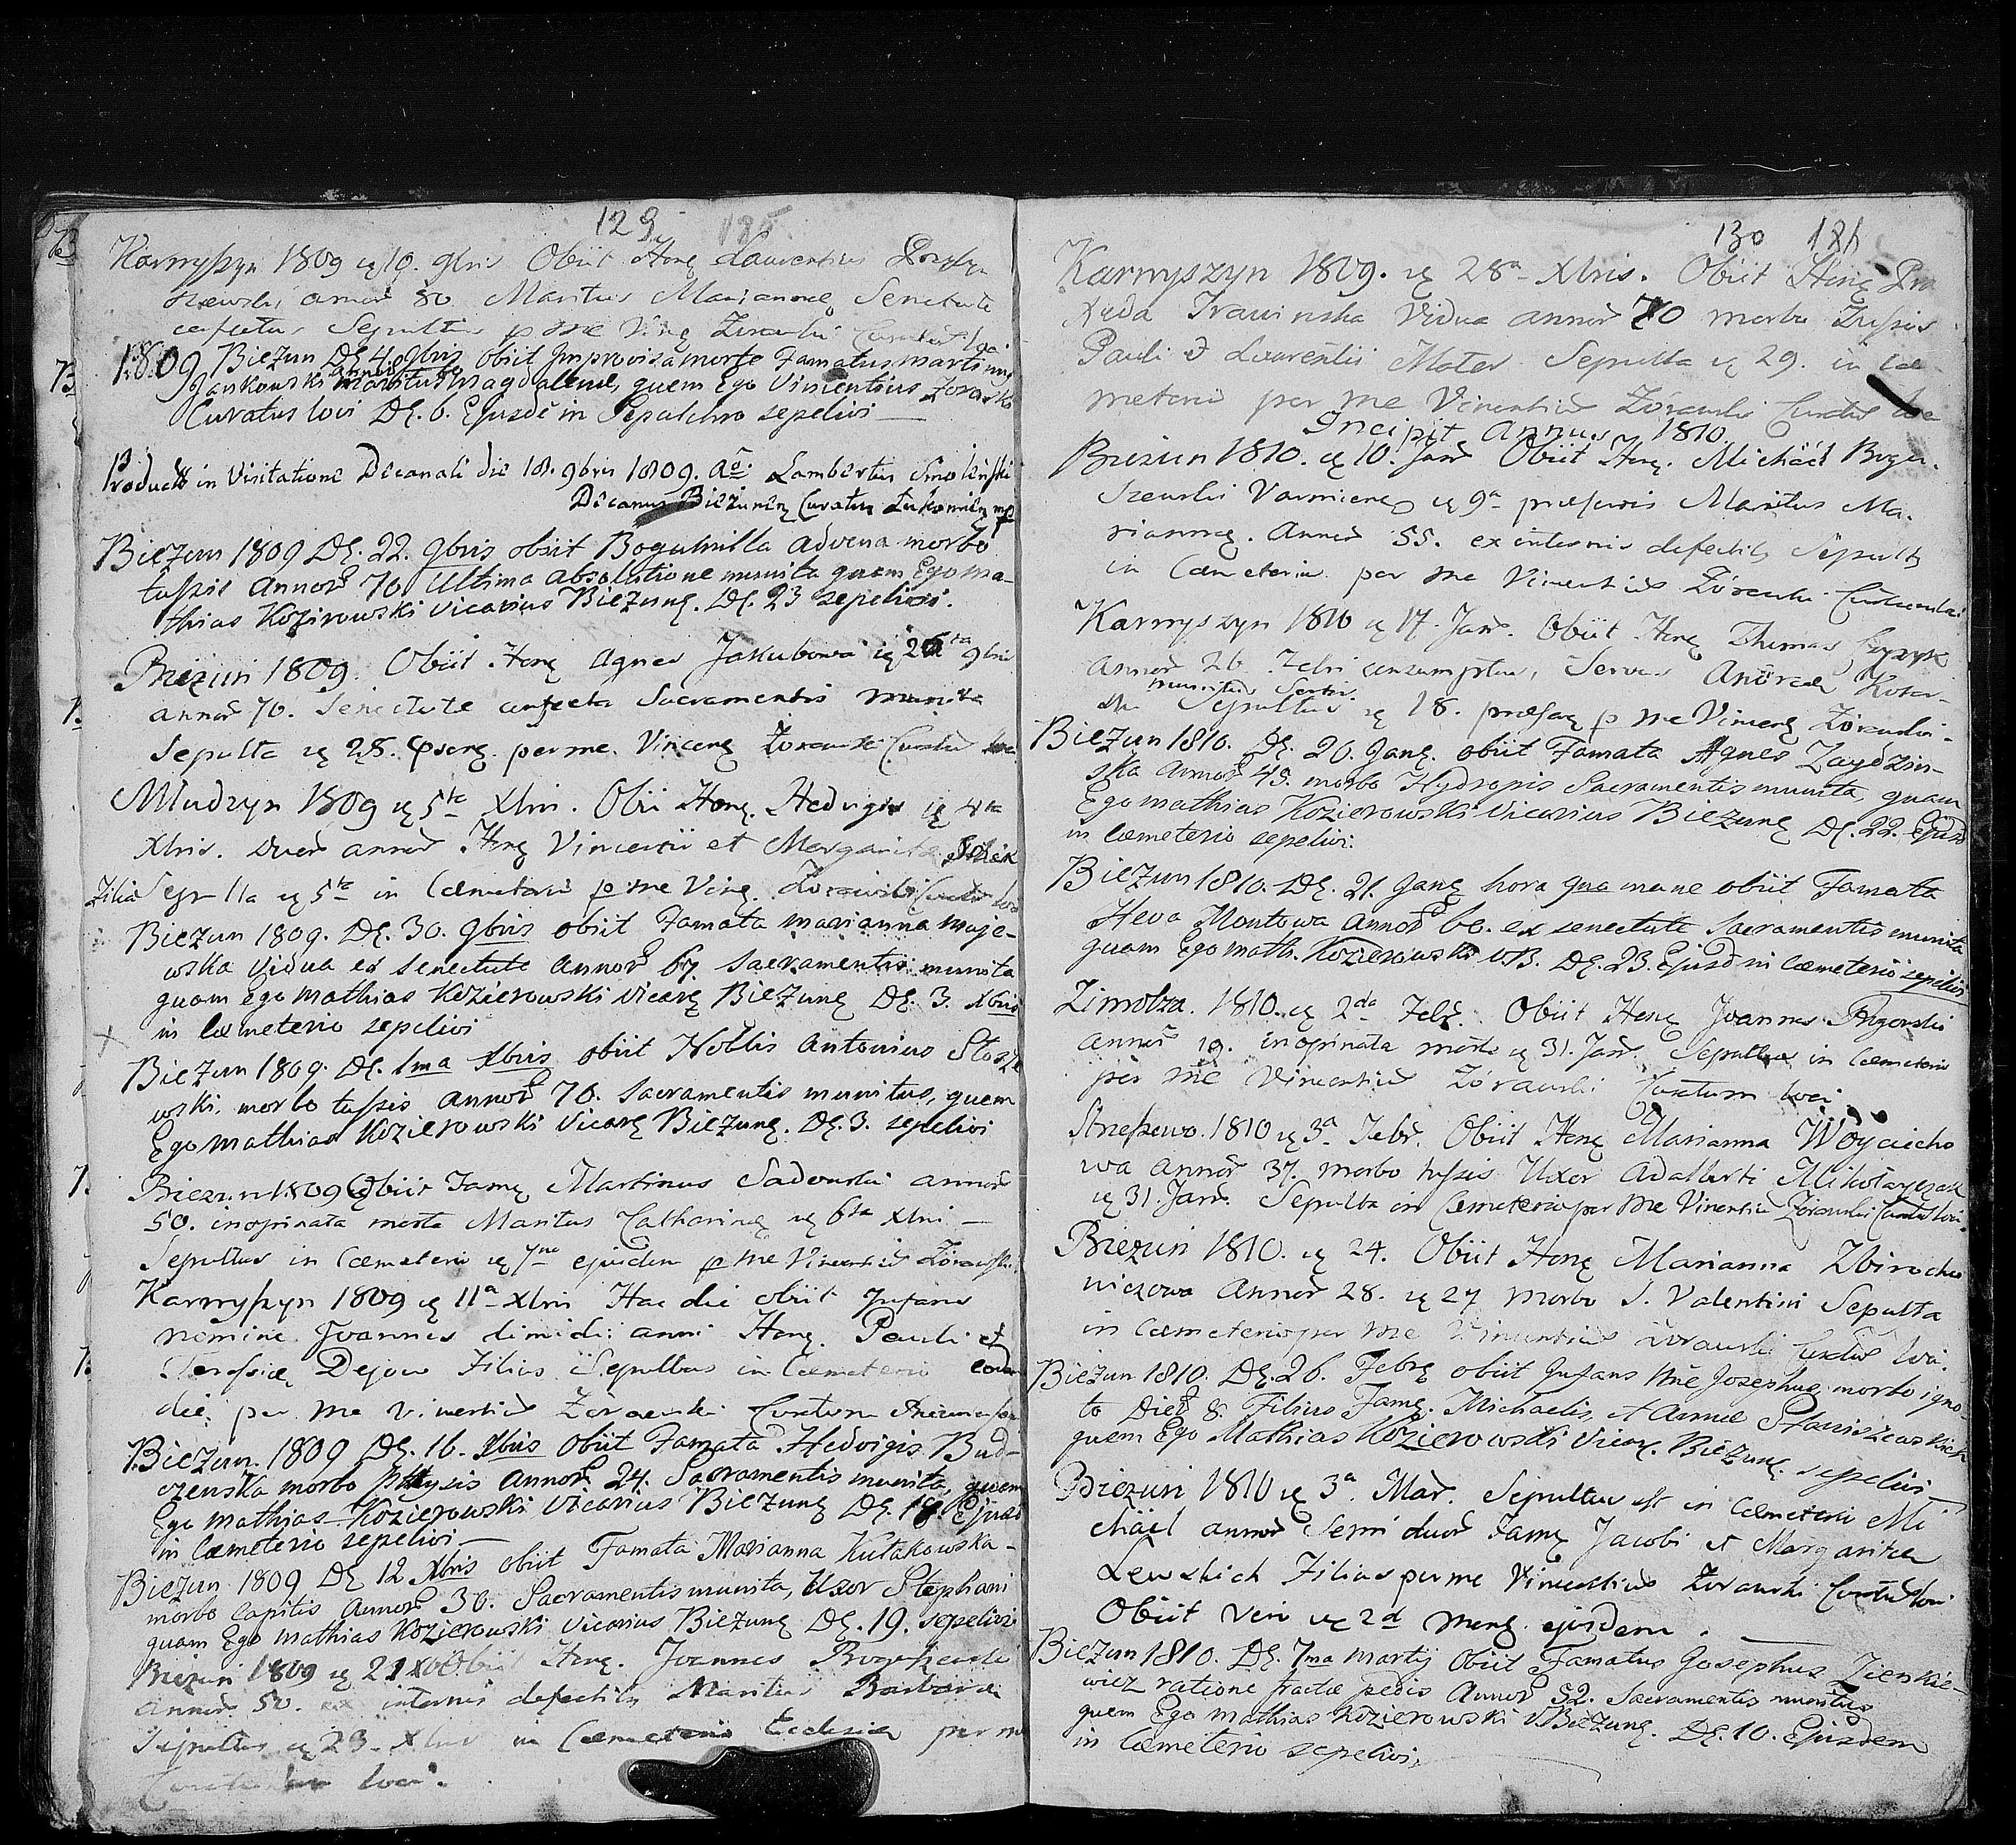 129 185
Karnyszyn 1809 ȩ 10. 9bris Obiit Honę Laurentius
szewski annor 80 Maritus Mariannę Senectute
confectus Sepultus p me Vinę Zorawski Curatum loci
1809 Biezun Dę 4. 9bris obiit Improvisa morte Famatus Martinus
Jankowski annor Maritus Magdalenæ, quem Ego Vincentius Zorawski
Curatus loci Dę. 6. Ejusdē in Sepulchro sepelivi —
Product in Visitatione Decanali die 18. 9bris 1809. Ao. Lambertus Smoleński
Decanus Biezunenę Curatus mp
Biezun 1809 Dę. 22. 9bris obiit Bogumilla advena morbo
tussis Annor 70 Ultima absolutione munita quam Ego Ma-
thias Kozirowski Vicarius Biezunę. Dę. 23 sepelivi.
Biezuń 1809. Obiit Honę Agnes Jakubowa ȩ 26ta 9bris
annor 70. Senectute confecta Sacramentis munita
Sepulta ȩ 28. per me. Vincenę Zorawski Curatum loci
Mludzyn 1809 ȩ 5ta Xbris. Obii Honę. Hedvigis ȩ 4ta
Xbris. Duor annor Honę Vincentii et Margaritæ
Filia Sepulta ȩ 5ta in Cæmeterio p me Vinę. Zorawski Curatum loci
Biezun 1809. Dę. 30. 9bris obiit Famata Marianna Maje-
wska Vidua ex senectute Annor 67. Sacramentis munita
quam Ego Mathias Kozierowski Vicarę Biezunę Dę. 3. Xbris
in Cæmeterio sepelivi
Biezun 1809. Dę. 1ma Xbris obiit Nobilis Antonius Stosze
wski, morbo tussis Annor 70. Sacramentis munitus, quem
Ego Mathias Kozierowski Vicarę Biezunę. Dę. 3. sepelivi
Biezun 1809 Obiit Famę Martinus Sadowski annor
50. inopinata morte Maritus Catharinę ȩ 6ta Xbri —
Sepultus in Cæmeterio ȩ 7ma ejusdem p me Vincentiu Zorawski
Karnyszyn 1809 ȩ 11a Xbris Hac die obiit Infans
nomine Joannes dimidii anni Honę. Pauli et
Dejow Filius Sepultus in Cæmeterio eodem
die, per me Vincentiu Zorawski Curatum
Biezun. 1809 Dę. 16. Xbris obiit Famata Hedvigis Bud-
czenska morbo Phtysis Annor 24. Sacramentis munita, quam
Ego Mathias Kozierowski Vicarius Biezunę Dę. 18. Ejusd
in Cæmeterio sepelivi —
Biezun 1809 Dę 12 Xbris obiit Famata Marianna Kułakowska -
morbo Capitis Annor 36. Sacramentis munita, Uxor Stephani
quam Ego Mathias Kozierowski Vicarius Biezunę Dę. 19. sepelivi
Biezuń 1809 ȩ 21 Obiit Honę. Joannes
annor 50. ex internis defectib Maritus Barbaræ
Sepultus ȩ 23 Xbris in Cæmeterio Ecclesiæ per me
Curatum loci.
130 186
Karnyszyn 1809. ȩ 28a Xbris. Obiit Honę Pra
xeda Trawinska Vidua annor 70 morbo Tussis
Pauli & Laurentii Mater Sepulta ȩ 29. in Cæ
meterio per me Vincentiu Zórawski Curatum loci
Incipit Annus 1810
Biezun 1810. ȩ 10. Janr Obiit Honę. Michäel Bogu-
szewski ȩ 9a præsentis Maritus Ma-
riannę. Annor 55. ex internis defectib, Sepultus
in Cæmeterio per me Vincentiu Zórawski
Karnyszyn 1810 ȩ 17. Janr. Obiit Honę Thomas
annor 26. Febri consumptus, Servus Andreæ
munitus Sacris Sepultus ȩ 18. p me Vincenę Zórawski -
Biezun 1810. Dę. 20. Janę. obiit Famata Agnes Zaydzin-
ska Annor 45. morbo Hydropis Sacramentis munita, quam
Ego Mathias Kozierowski Vicarius Biezunę Dę. 22. Ejusd
in Cæmeterio sepelivi.
Biezun 1810. Dę. 21. Janę hora 9na mane obiit Famata
Heva Montowa Annor 60. ex senectute Sacramentis munita
quam Ego Math. Kozierowski VB. Dę. 23. Ejusd in Cæmeterio sepelivi
Zimolza. 1810. ȩ 2da Febr. Obiit Honę Joannes Rogowski
annor 19. inopinata morte ȩ 31. Janr. Sepultus in Cæmeterio
per me Vincentiu Zórawski Curatum loci
Strzeszewo. 1810 ȩ 3a Febr. Obiit Honę Marianna Woyciecho
wa annor 37. morbo tussis Uxor Adalberti Mikołayczak
ȩ 31. Janr. Sepulta in Cæmeterio per me Vincentiu Zórawski Curatum loci.
Biezuń 1810. ȩ 24. Obiit Honę Marianna Zbirocho
wiczowa Annor 28. ȩ 27 morbo S. Valentini Sepulta
in Cæmeterio per me Vincentium Zorawski Curatum loci.
Biezun 1810. Dę. 26. Febrę obiit Infans Nne Josephus morbo igno-
to Dier 8. Filius Famę. Michaelis, et Annæ Staniszewskich
quem Ego Mathias Kozierowski Vicar. Biezunę. sepelivi —
Biezuń 1810 ȩ 3a. Mar. Sepultus est in Cæmeterio Mi
chäel annor Semi duor Famę Jacobi et Margaritæ
Lewskich Filius per me Vincentiu Zorawski Curatum loci
Obiit vero ȩ 2d Mensę ejusdem.
Biezun 1810. Dę. 7ma Martij Obiit Famatus Josephus Zienkie-
wicz ratione fractæ pedis Annor 32. Sacramentis munitus
quem Ego Mathias Kozierowski V Biezunę. Dę. 10. Ejusdem
in Cæmeterio sepelivi.